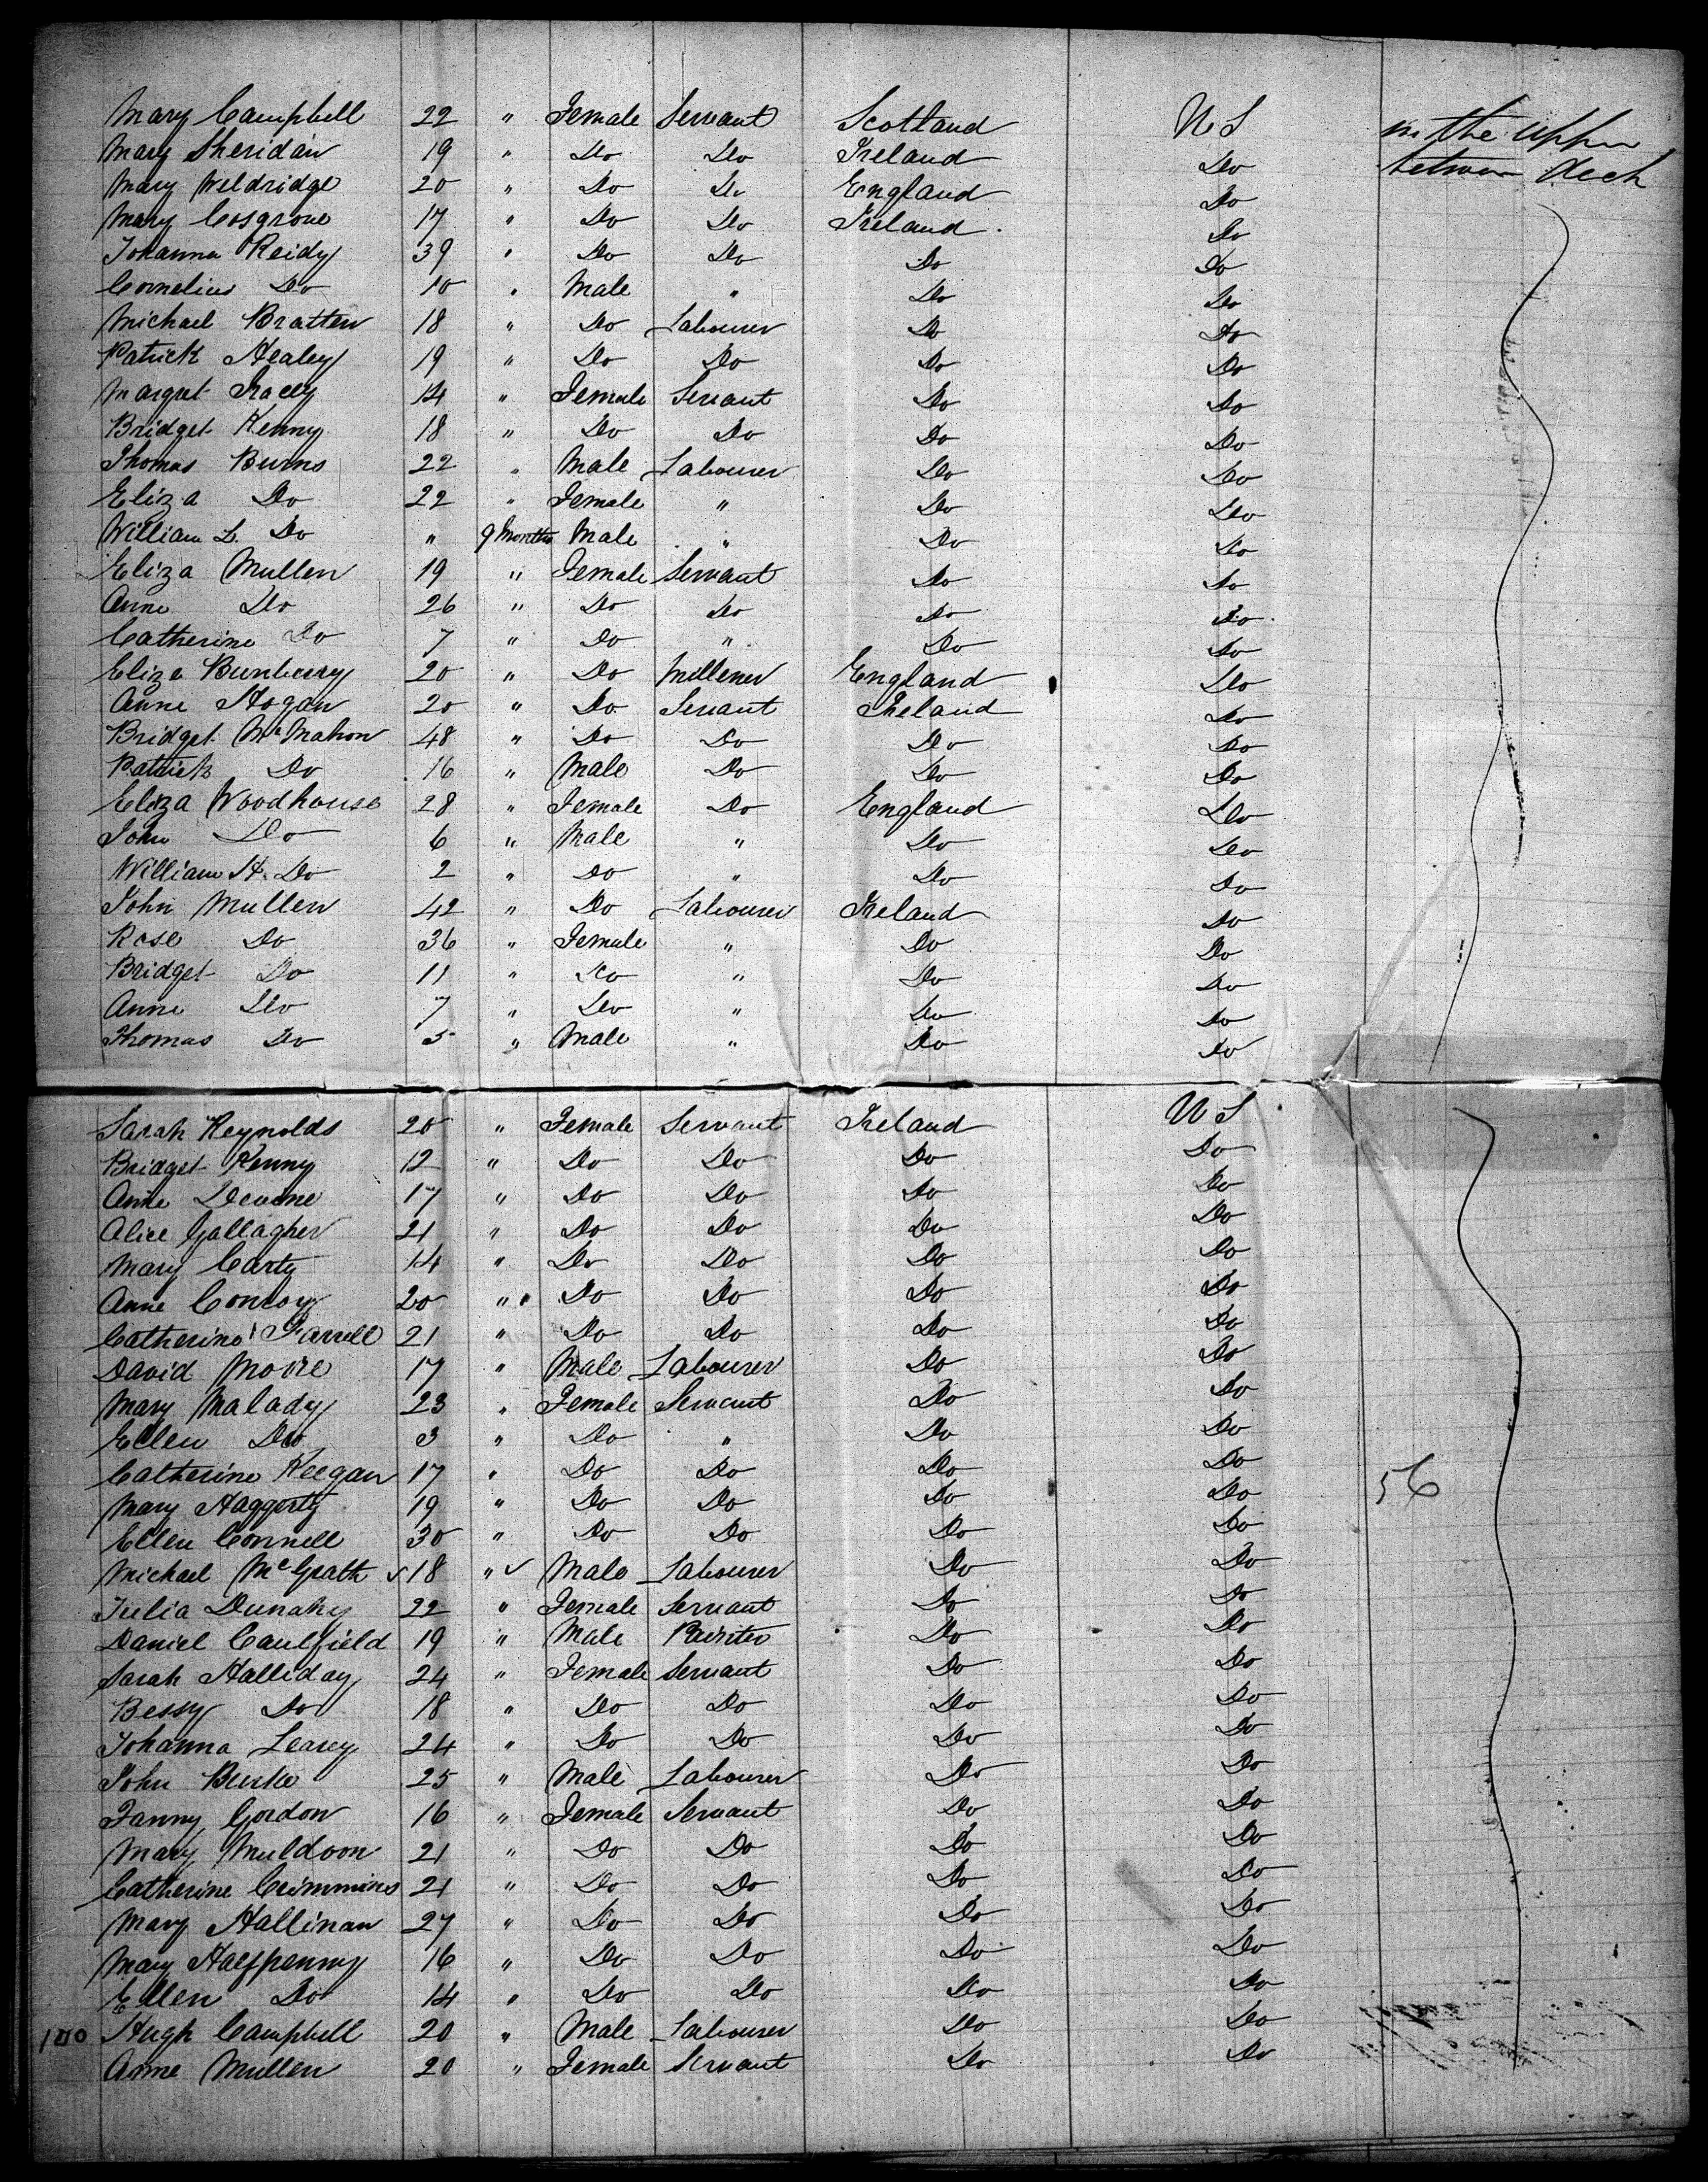 Mary Campbell 22 " Female Servant Scotland U S in the upper
Mary Sheridan 19 " Do Do Ireland Do between deck
Mary Weldridge 20 " Do Do England Do
Mary Cosgrove 17 " Do Do Ireland Do
Johanna Reidy 39 " Do Do Do Do
Cornelius Do 10 " Male " Do Do
Michael Bratten 18 " Do Labourer Do Do
Patrick Healey 19 " Do Do Do Do
Margret Tracey 14 " Female Servant Do Do
Bridget Kenny 18 " Do Do Do Do
Thomas Burns 22 " Male Labourer Do Do
Eliza Do 22 " Female " Do Do
William L. Do " 9 Months Male " Do Do
Eliza Mullen 19 " Female Servant Do Do
Anne Do 26 " Do Do Do Do
Catherine Do 7 " Do " Do Do
Eliza Bunberry 20 " Do Millener England Do
Anne Hogan 20 " Do Servant Ireland Do
Bridget McMahon 48 " Do Do Do Do
Patrick Do 16 " Male Do Do Do
Eliza Woodhouse 28 " Female Do England Do
John Do 6 " Male " Do Do
William H. Do 2 " Do " Do Do
John Mullen 42 " Do Labourer Ireland Do
Rose Do 36 " Female " Do Do
Bridget Do 11 " Do " Do Do
Anne Do 7 " Do " Do Do
Thomas Do 5 " Male " Do Do
Sarah Reynolds 20 " Female Servant Ireland U S
Bridget Kenny 12 " Do Do Do Do
Anne Devene 17 " Do Do Do Do
Alice Gallagher 21 " Do Do Do Do
Mary Carty 14 " Do Do Do Do
Anne Conroy 20 " Do Do Do Do
Catherine Farrell 21 " Do Do Do Do
David Moore 17 " Male Labourer Do Do
Mary Malady 23 " Female Servant Do Do
Ellen Do 3 " Do " Do Do
Catherine Keegan 17 " Do Do Do Do
Mary Haggerty 19 " Do Do Do Do 56
Ellen Connell 30 " Do Do Do Do
Michael McGrath ✓ 18 " ✓ Male Labourer Do Do
Julia Dunahy 22 " Female Servant Do Do
Daniel Caulfield 19 " Male Do Do
Sarah Halliday 24 " Female Servant Do Do
Bessy Do 18 " Do Do Do Do
Johanna Learey 24 " Do Do Do Do
John Burke 25 " Male Labourer Do Do
Fanny Gordon 16 " Female Servant Do Do
Mary Muldoon 21 " Do Do Do Do
Catherine Crimmins 21 " Do Do Do Do
Mary Hallinan 27 " Do Do Do Do
Mary Halfpenny 16 " Do Do Do Do
Ellen Do 14 " Do Do Do Do
100 Hugh Campbell 20 " Male Labourer Do Do
Anne Mullen 20 " Female Servant Do Do